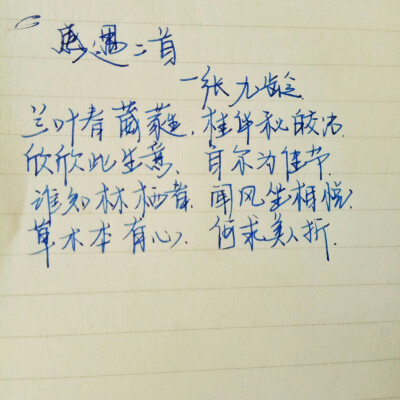 感遇二首
一张九龄
兰叶春葳蕤，桂华秋皎洁.
欣欣此生意，自尔为佳节.
谁知林栖者，闻风坐相悦.
草木本有心，何求美人折.